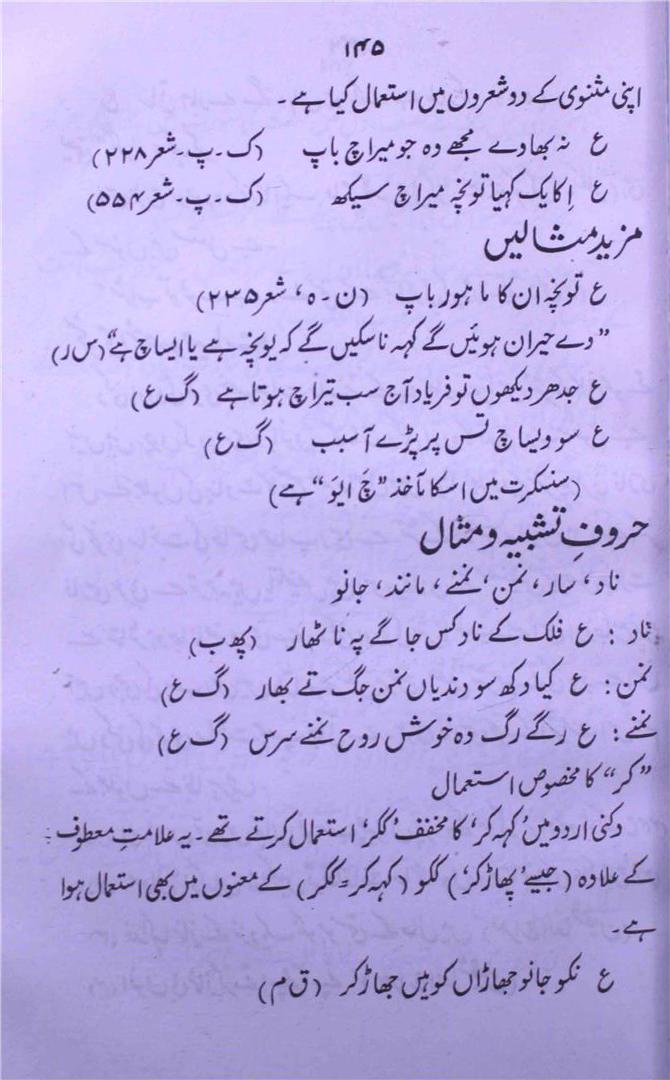 ۱۴۵
اپنی مثنوی کے دو شعروں میں استعمال کیا ہے ۔
ع نہ بھادے مجھے دہ جو میراچ باپ (ک ۔ پ ۔ شعر ۲۲۸)
ع اِکایک کہیا تونچہ میراچ سیکھ (ک ۔ پ ۔ شعر ۵۵۴)
مزید مثالیں
ع تونچہ ان کا ما ہور باپ (ن ۔ ہ ، شعر ۲۳۵)
” دے حیران ہوئیں گے کہہ ناسکیں گے کہ یونچہ ہے یا ایساچ ہے“ (س ر)
ع جدھر دیکھوں تو فریاد آج سب تیراچ ہوتا ہے (گ ع)
ع سو ویساچ تس پر پڑے آسبب (گ ع)
(سنسکرت میں اسکا مآخذ ”چَ ایوَ“ ہے)
حروفِ تشبیہ و مثال
ناد ، سار ، نمن ، نمنے ، مانند ، جانو
ناد : ع فلک کے ناد کس جاگے پہ نا ٹھار (پھ ب)
نمن : ع کیا دکھ سو دندیاں نمن جگ تے بھار (گ ع)
نمنے : ع رگے رگ دہ خوش روح نمنے سرس (گ ع)
”کر“ کا مخصوص استعمال
دکنی اردو میں ’کہہ کر‘ کا مخفف ’ککر‘ استعمال کرتے تھے ۔ یہ علامتِ معطوف
کے علادہ (جیسے ’پھاڑکر‘) ککو (کہہ کر = ککر) کے معنوں میں بھی استعمال ہوا
ہے ۔
ع نکو جانو جھاڑاں کو ہیں جھاڑ کر (ق م)